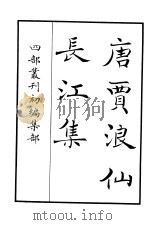 唐賈浪仙
長江集
四部叢刊初編集部
mtoou.info